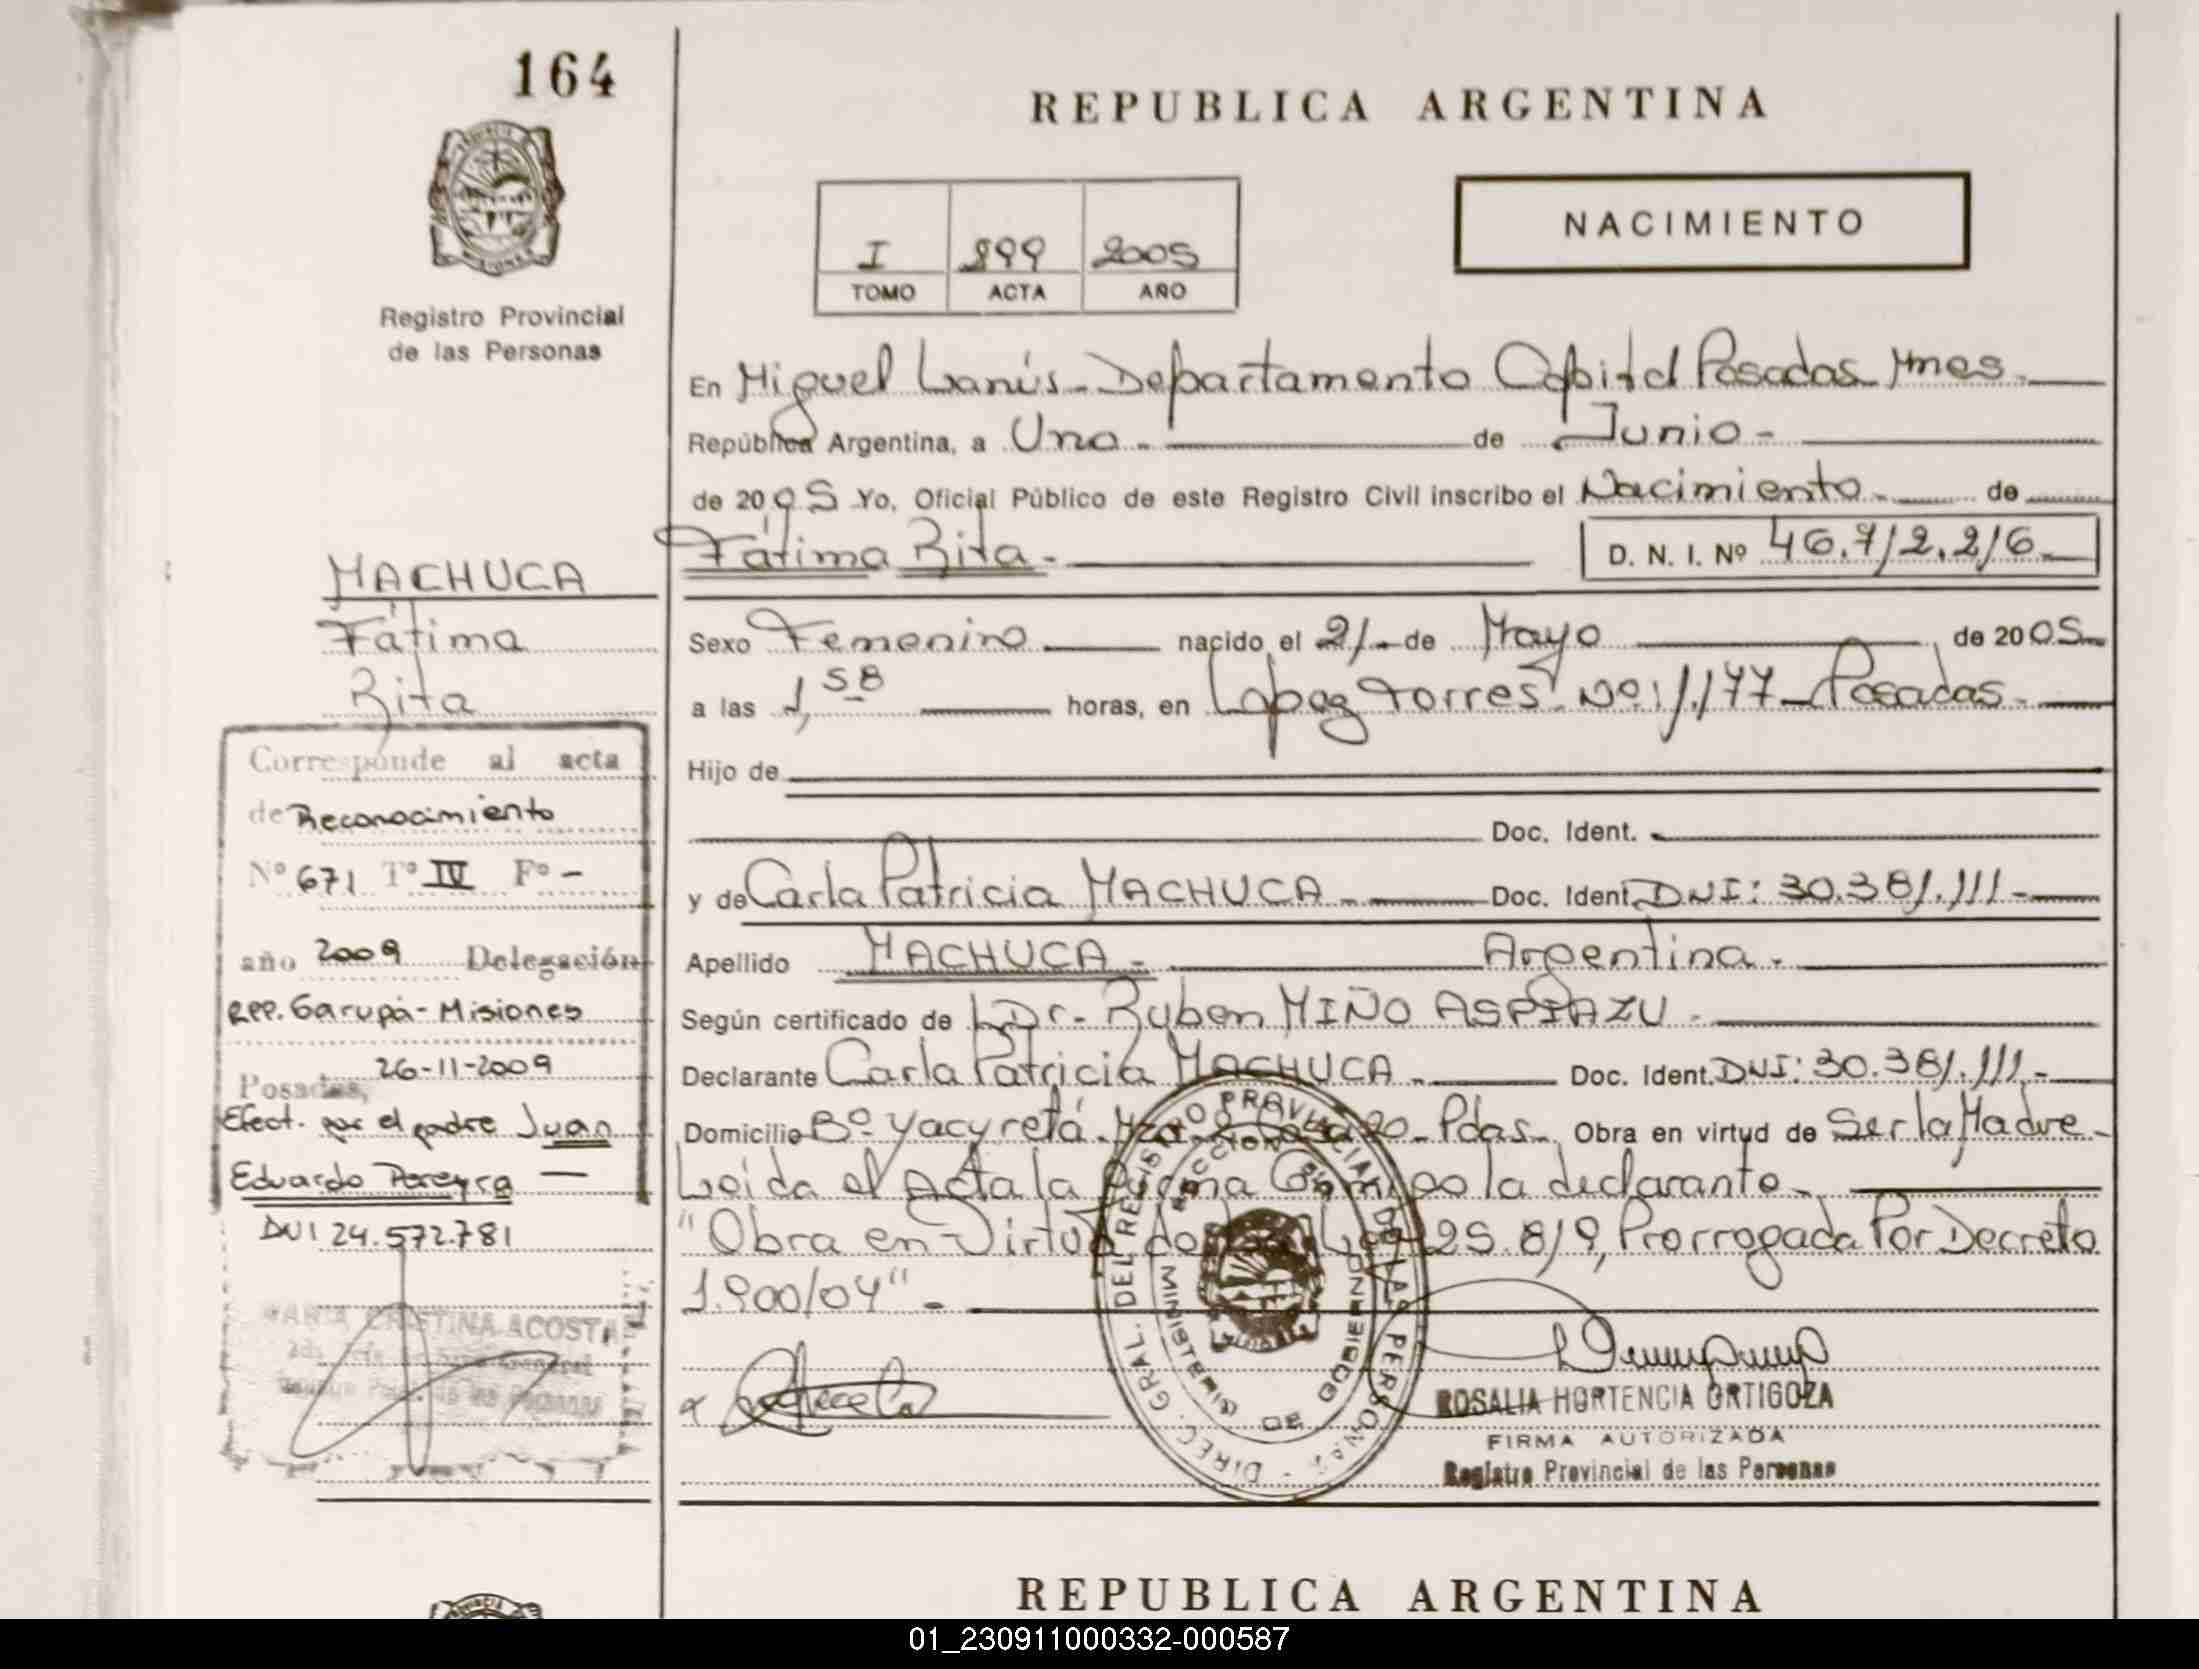 164
REPUBLICA ARGENTINA
PROVINCIA
MISIONES
Registro Provincial
de las Personas
I 899 2005
TOMO ACTA AÑO
NACIMIENTO
En Miguel Lanús - Departamento Capital Posadas Mnes.
República Argentina, a Uno - de Junio -
de 2005 Yo, Oficial Público de este Registro Civil inscribo el Nacimiento - de
Fátima Rita - D. N. I. Nº 46.712.216
MACHUCA
Fátima
Rita
Sexo Femenino nacido el 21 - de Mayo de 2005
a las 1,58 horas, en Lopez Torres Nº 1.177 - Posadas -
Hijo de
Doc. Ident.
y de Carla Patricia MACHUCA - Doc. Ident. DNI: 30.381.111 -
Apellido MACHUCA - Argentina -
Según certificado de Dr. Ruben MIÑO ASPIAZU -
Declarante Carla Patricia MACHUCA - Doc. Ident. DNI: 30.381.111 -
Domicilio Bº Yacyretá Mza. Pdas - Obra en virtud de Ser la Madre -
Leida el Acta la Firma Conmigo la declarante -
"Obra en Virtud de la Ley 25.819, Prorrogada Por Decreto
1.900/04" -
Corresponde al acta
de Reconocimiento
Nº 671 Tº IV Fº -
año 2009 Delegación
RPP. Garupá - Misiones
Posadas, 26-11-2009
Efect. por el padre Juan
Eduardo Pereyra —
DNI 24.572.781
MARIA CRISTINA ACOSTA
DIREC. GRAL. DEL REGISTRO PROVINCIAL DE LAS PERSONAS
MINISTERIO DE GOBIERNO
ROSALIA HORTENCIA ORTIGOZA
FIRMA AUTORIZADA
Registro Provincial de las Personas
REPUBLICA ARGENTINA
01_230911000332-000587